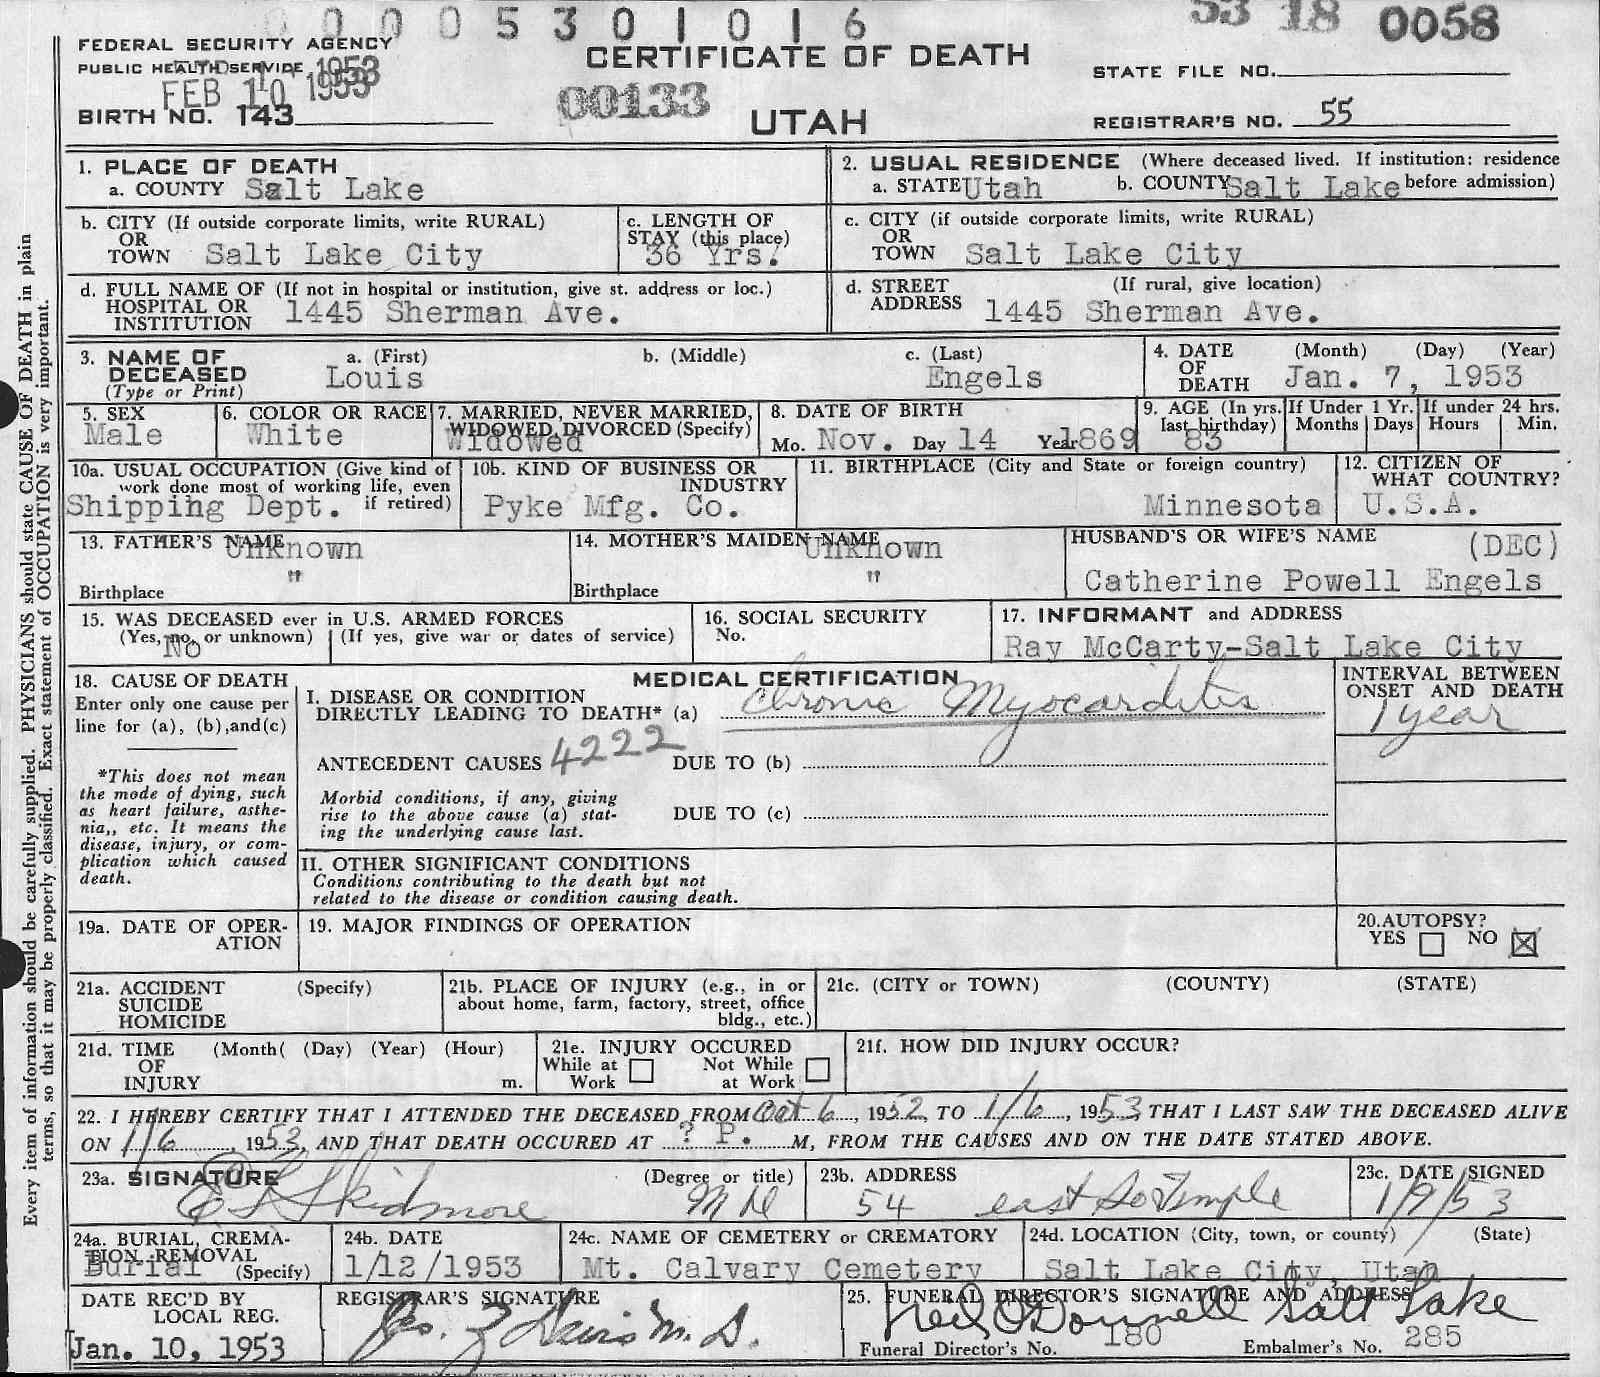 0 0 0 0 5 3 0 1 0 1 6
53 18 0058
FEDERAL SECURITY AGENCY
PUBLIC HEALTH SERVICE 1953
FEB 10 1953
BIRTH NO. 143
CERTIFICATE OF DEATH
00133
UTAH
STATE FILE NO.
REGISTRAR'S NO. 55
1. PLACE OF DEATH
a. COUNTY Salt Lake
2. USUAL RESIDENCE (Where deceased lived. If institution: residence
a. STATE Utah b. COUNTY Salt Lake before admission)
b. CITY (If outside corporate limits, write RURAL)
OR
TOWN Salt Lake City
c. LENGTH OF
STAY (this place)
36 Yrs.
c. CITY (if outside corporate limits, write RURAL)
OR
TOWN Salt Lake City
d. FULL NAME OF (If not in hospital or institution, give st. address or loc.)
HOSPITAL OR
INSTITUTION 1445 Sherman Ave.
d. STREET (If rural, give location)
ADDRESS 1445 Sherman Ave.
3. NAME OF
DECEASED
(Type or Print)
a. (First)
Louis
b. (Middle)
c. (Last)
Engels
4. DATE
OF
DEATH
(Month) (Day) (Year)
Jan. 7, 1953
5. SEX
Male
6. COLOR OR RACE
White
7. MARRIED, NEVER MARRIED,
WIDOWED, DIVORCED (Specify)
Widowed
8. DATE OF BIRTH
Mo. Nov. Day 14 Year 1869
9. AGE (In yrs.
last birthday)
83
If Under 1 Yr.
Months Days
If under 24 hrs.
Hours Min.
10a. USUAL OCCUPATION (Give kind of
work done most of working life, even
Shipping Dept. if retired)
10b. KIND OF BUSINESS OR
INDUSTRY
Pyke Mfg. Co.
11. BIRTHPLACE (City and State or foreign country)
Minnesota
12. CITIZEN OF
WHAT COUNTRY?
U.S.A.
13. FATHER'S NAME
Unknown
Birthplace "
14. MOTHER'S MAIDEN NAME
Unknown
Birthplace "
HUSBAND'S OR WIFE'S NAME (DEC)
Catherine Powell Engels
15. WAS DECEASED ever in U.S. ARMED FORCES
(Yes, no, or unknown) (If yes, give war or dates of service)
No
16. SOCIAL SECURITY
No.
17. INFORMANT and ADDRESS
Ray McCarty-Salt Lake City
18. CAUSE OF DEATH
Enter only one cause per
line for (a), (b),and(c)
*This does not mean
the mode of dying, such
as heart failure, asthe-
nia,, etc. It means the
disease, injury, or com-
plication which caused
death.
MEDICAL CERTIFICATION
I. DISEASE OR CONDITION
DIRECTLY LEADING TO DEATH* (a) Chronic Myocarditis
INTERVAL BETWEEN
ONSET AND DEATH
1 year
ANTECEDENT CAUSES 4222 DUE TO (b)
Morbid conditions, if any, giving
rise to the above cause (a) stat-
ing the underlying cause last.
DUE TO (c)
II. OTHER SIGNIFICANT CONDITIONS
Conditions contributing to the death but not
related to the disease or condition causing death.
19a. DATE OF OPER-
ATION
19. MAJOR FINDINGS OF OPERATION
20.AUTOPSY?
YES NO
21a. ACCIDENT (Specify)
SUICIDE
HOMICIDE
21b. PLACE OF INJURY (e.g., in or
about home, farm, factory, street, office
bldg., etc.)
21c. (CITY or TOWN) (COUNTY) (STATE)
21d. TIME (Month( (Day) (Year) (Hour)
OF
INJURY m.
21e. INJURY OCCURED
While at Work
Not While at Work
21f. HOW DID INJURY OCCUR?
22. I HEREBY CERTIFY THAT I ATTENDED THE DECEASED FROM Oct 6, 1952, TO 1/6, 1953 THAT I LAST SAW THE DECEASED ALIVE
ON 1/6, 1953, AND THAT DEATH OCCURED AT ? P. M, FROM THE CAUSES AND ON THE DATE STATED ABOVE.
23a. SIGNATURE (Degree or title)
Skidmore MD
23b. ADDRESS
54 east So Temple
23c. DATE SIGNED
1/9/53
24a. BURIAL, CREMA-
TION, REMOVAL
Burial (Specify)
24b. DATE
1/12/1953
24c. NAME OF CEMETERY or CREMATORY
Mt. Calvary Cemetery
24d. LOCATION (City, town, or county) (State)
Salt Lake City, Utah
DATE REC'D BY
LOCAL REG.
Jan. 10, 1953
REGISTRAR'S SIGNATURE
Davis M.D.
25. FUNERAL DIRECTOR'S SIGNATURE AND ADDRESS
Neil O'Donnell Salt Lake
Funeral Director's No. 180 Embalmer's No. 285
Every item of information should be carefully supplied. PHYSICIANS should state CAUSE OF DEATH in plain
terms, so that it may be properly classified. Exact statement of OCCUPATION is very important.